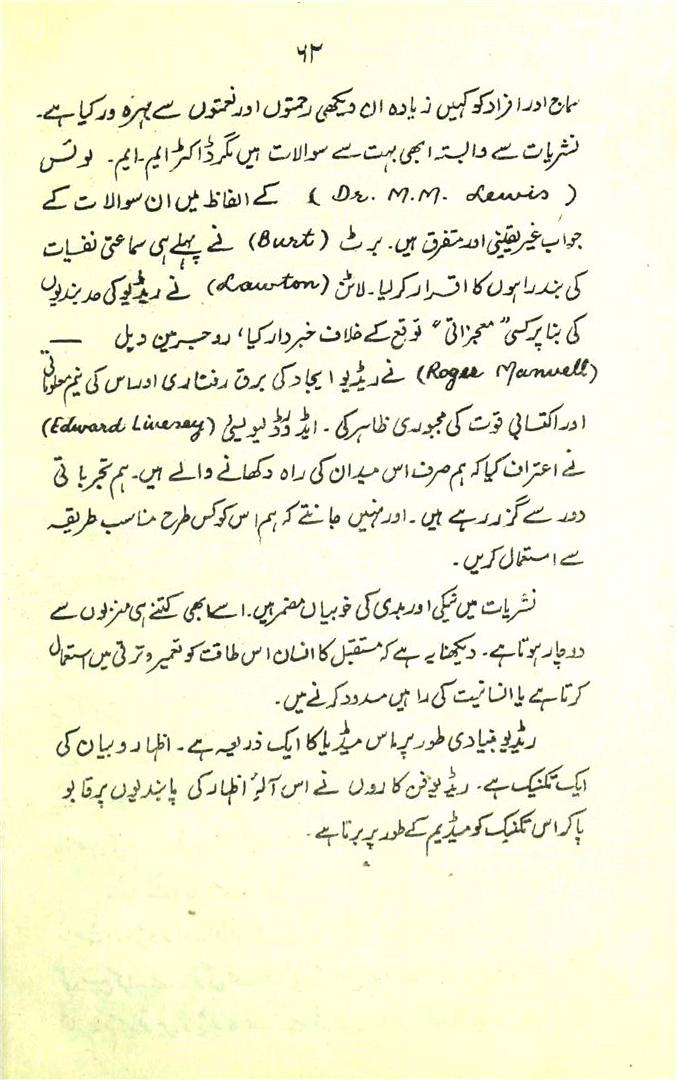 ۶۲
سماج اور افراد کو کہیں زیادہ ان دیکھی رحمتوں اور نعمتوں سے بہرہ ور کیا ہے۔
نشریات سے وابستہ ابھی بہت سے سوالات ہیں مگر ڈاکٹر ایم۔ایم۔ لوئس
(Dr. M.M. Lewis) کے الفاظ میں ان سوالات کے
جواب غیر یقینی اور متفرق ہیں۔ برٹ (Burt) نے پہلے ہی سماعتی نفسیات
کی بند راہوں کا اقرار کر لیا۔ لاٹن (Lawton) نے ریڈیو کی حد بندیوں
کی بنا پر کسی "معجزاتی" توقع کے خلاف خبردار کیا، روجر مین ویل —
(Roger Manvell) نے ریڈیو ایجاد کی برق رفتاری اور اس کی نیم معلوماتی
اور اکتسابی قوت کی مجبوری ظاہر کی۔ ایڈورڈ لیوسلی (Edward Livesey)
نے اعتراف کیا کہ ہم صرف اس میدان کی راہ دکھانے والے ہیں۔ ہم تجرباتی
دور سے گزر رہے ہیں۔ اور نہیں جانتے کہ ہم اس کو کس طرح مناسب طریقہ
سے استعمال کریں۔
نشریات میں نیکی اور بدی کی خوبیاں مضمر ہیں۔ اسے ابھی کتنے ہی منزلوں سے
دوچار ہوتا ہے۔ دیکھنا یہ ہے کہ مستقبل کا انسان اس طاقت کو تعمیر و ترقی میں استعمال
کرتا ہے یا انسانیت کی راہیں مسدود کرنے میں۔
ریڈیو بنیادی طور پر ماس میڈیا کا ایک ذریعہ ہے۔ اظہار و بیان کی
ایک تکنیک ہے۔ ریڈیو فن کاروں نے اس آلۂ اظہار کی پابندیوں پر قابو
پا کر اس تکنیک کو میڈیم کے طور پر برتا ہے۔